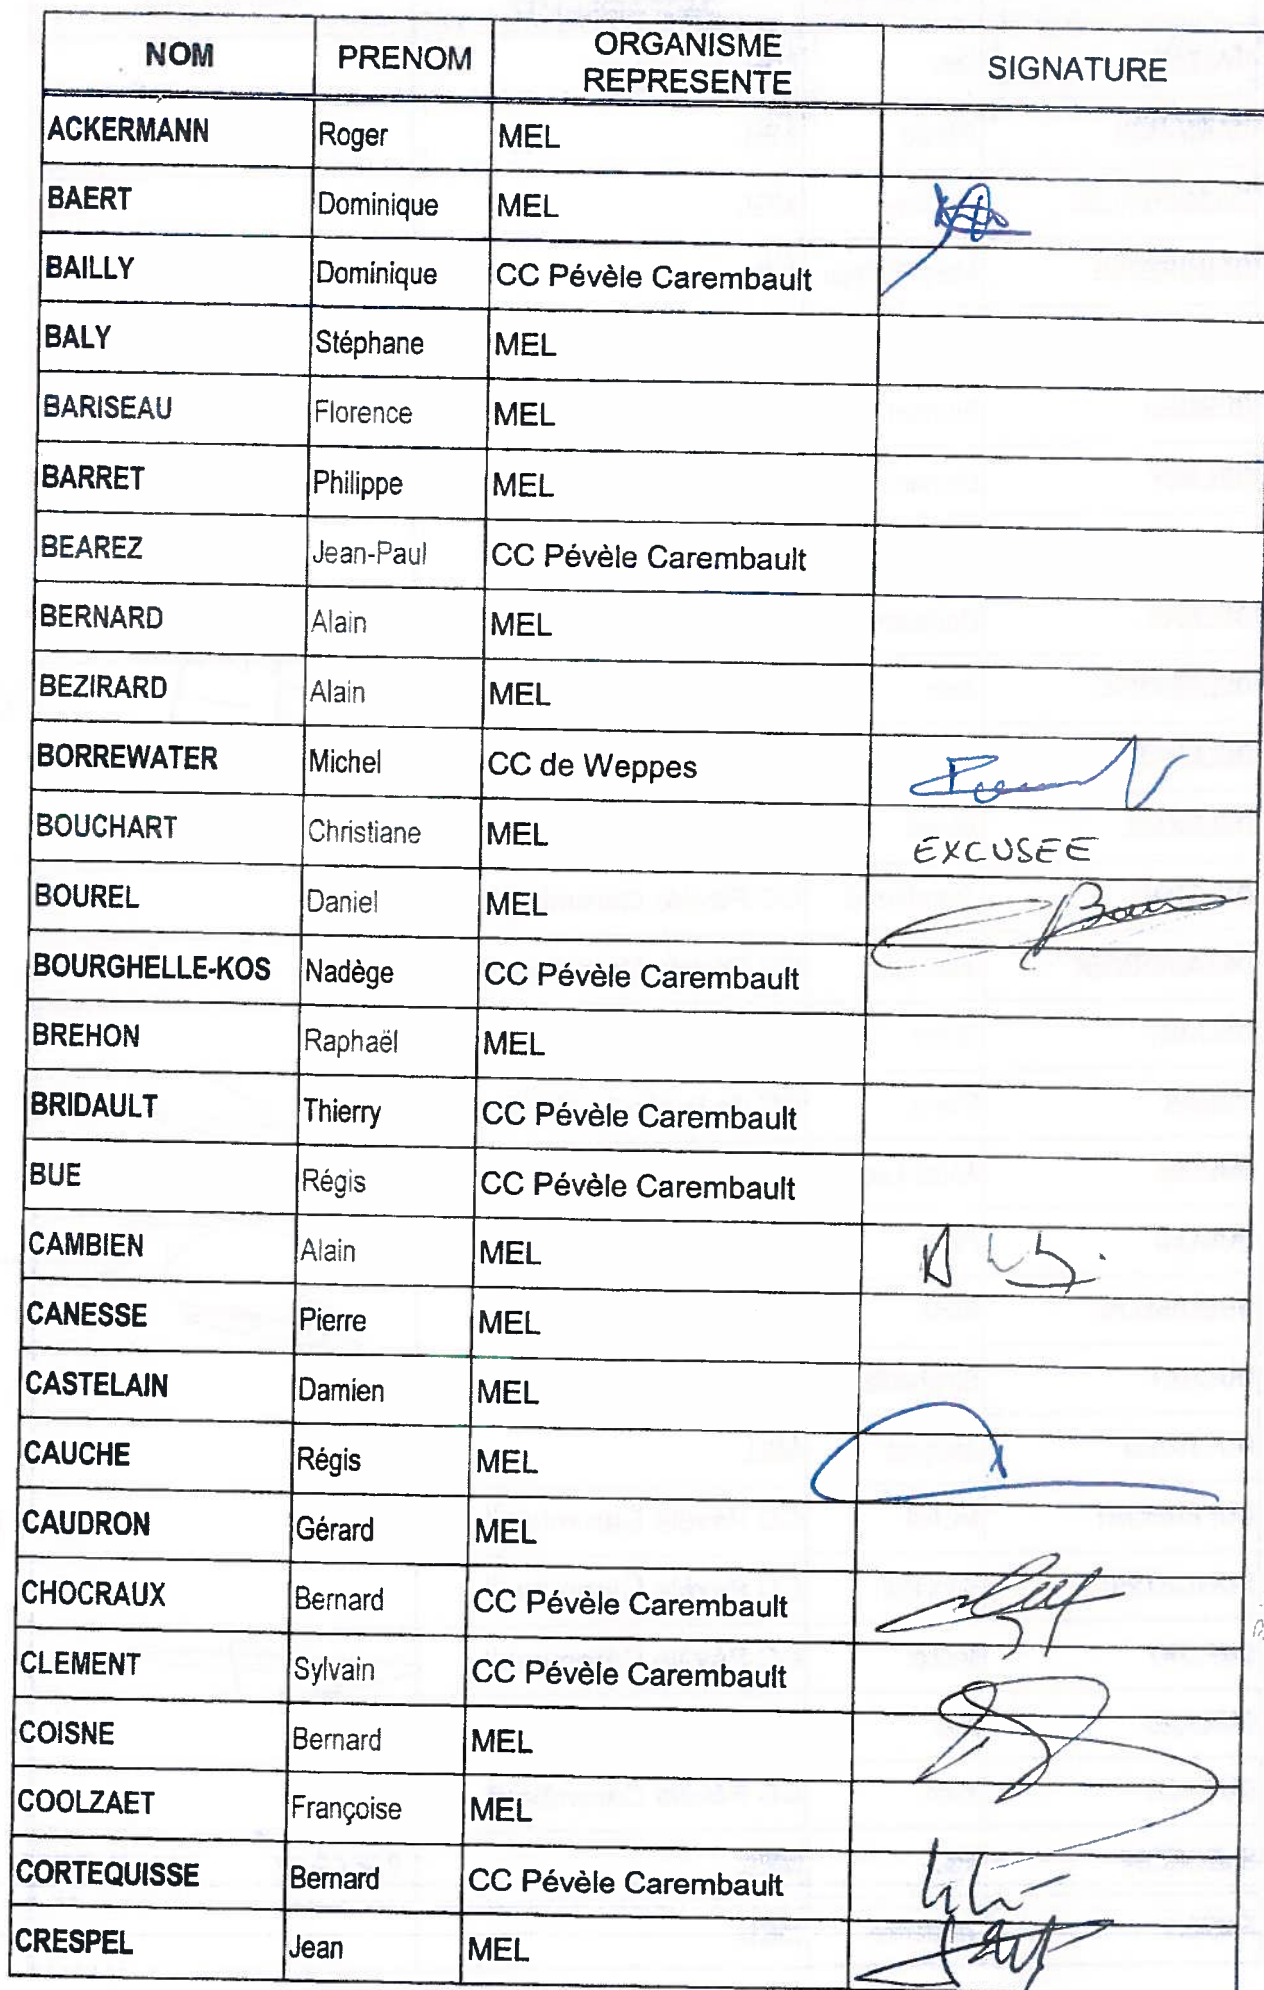 NOM PRENOM ORGANISME REPRESENTE SIGNATURE
ACKERMANN Roger MEL
BAERT Dominique MEL
BAILLY Dominique CC Pévèle Carembault
BALY Stéphane MEL
BARISEAU Florence MEL
BARRET Philippe MEL
BEAREZ Jean-Paul CC Pévèle Carembault
BERNARD Alain MEL
BEZIRARD Alain MEL
BORREWATER Michel CC de Weppes
BOUCHART Christiane MEL EXCUSEE
BOUREL Daniel MEL
BOURGHELLE-KOS Nadège CC Pévèle Carembault
BREHON Raphaël MEL
BRIDAULT Thierry CC Pévèle Carembault
BUE Régis CC Pévèle Carembault
CAMBIEN Alain MEL
CANESSE Pierre MEL
CASTELAIN Damien MEL
CAUCHE Régis MEL
CAUDRON Gérard MEL
CHOCRAUX Bernard CC Pévèle Carembault
CLEMENT Sylvain CC Pévèle Carembault
COISNE Bernard MEL
COOLZAET Françoise MEL
CORTEQUISSE Bernard CC Pévèle Carembault
CRESPEL Jean MEL